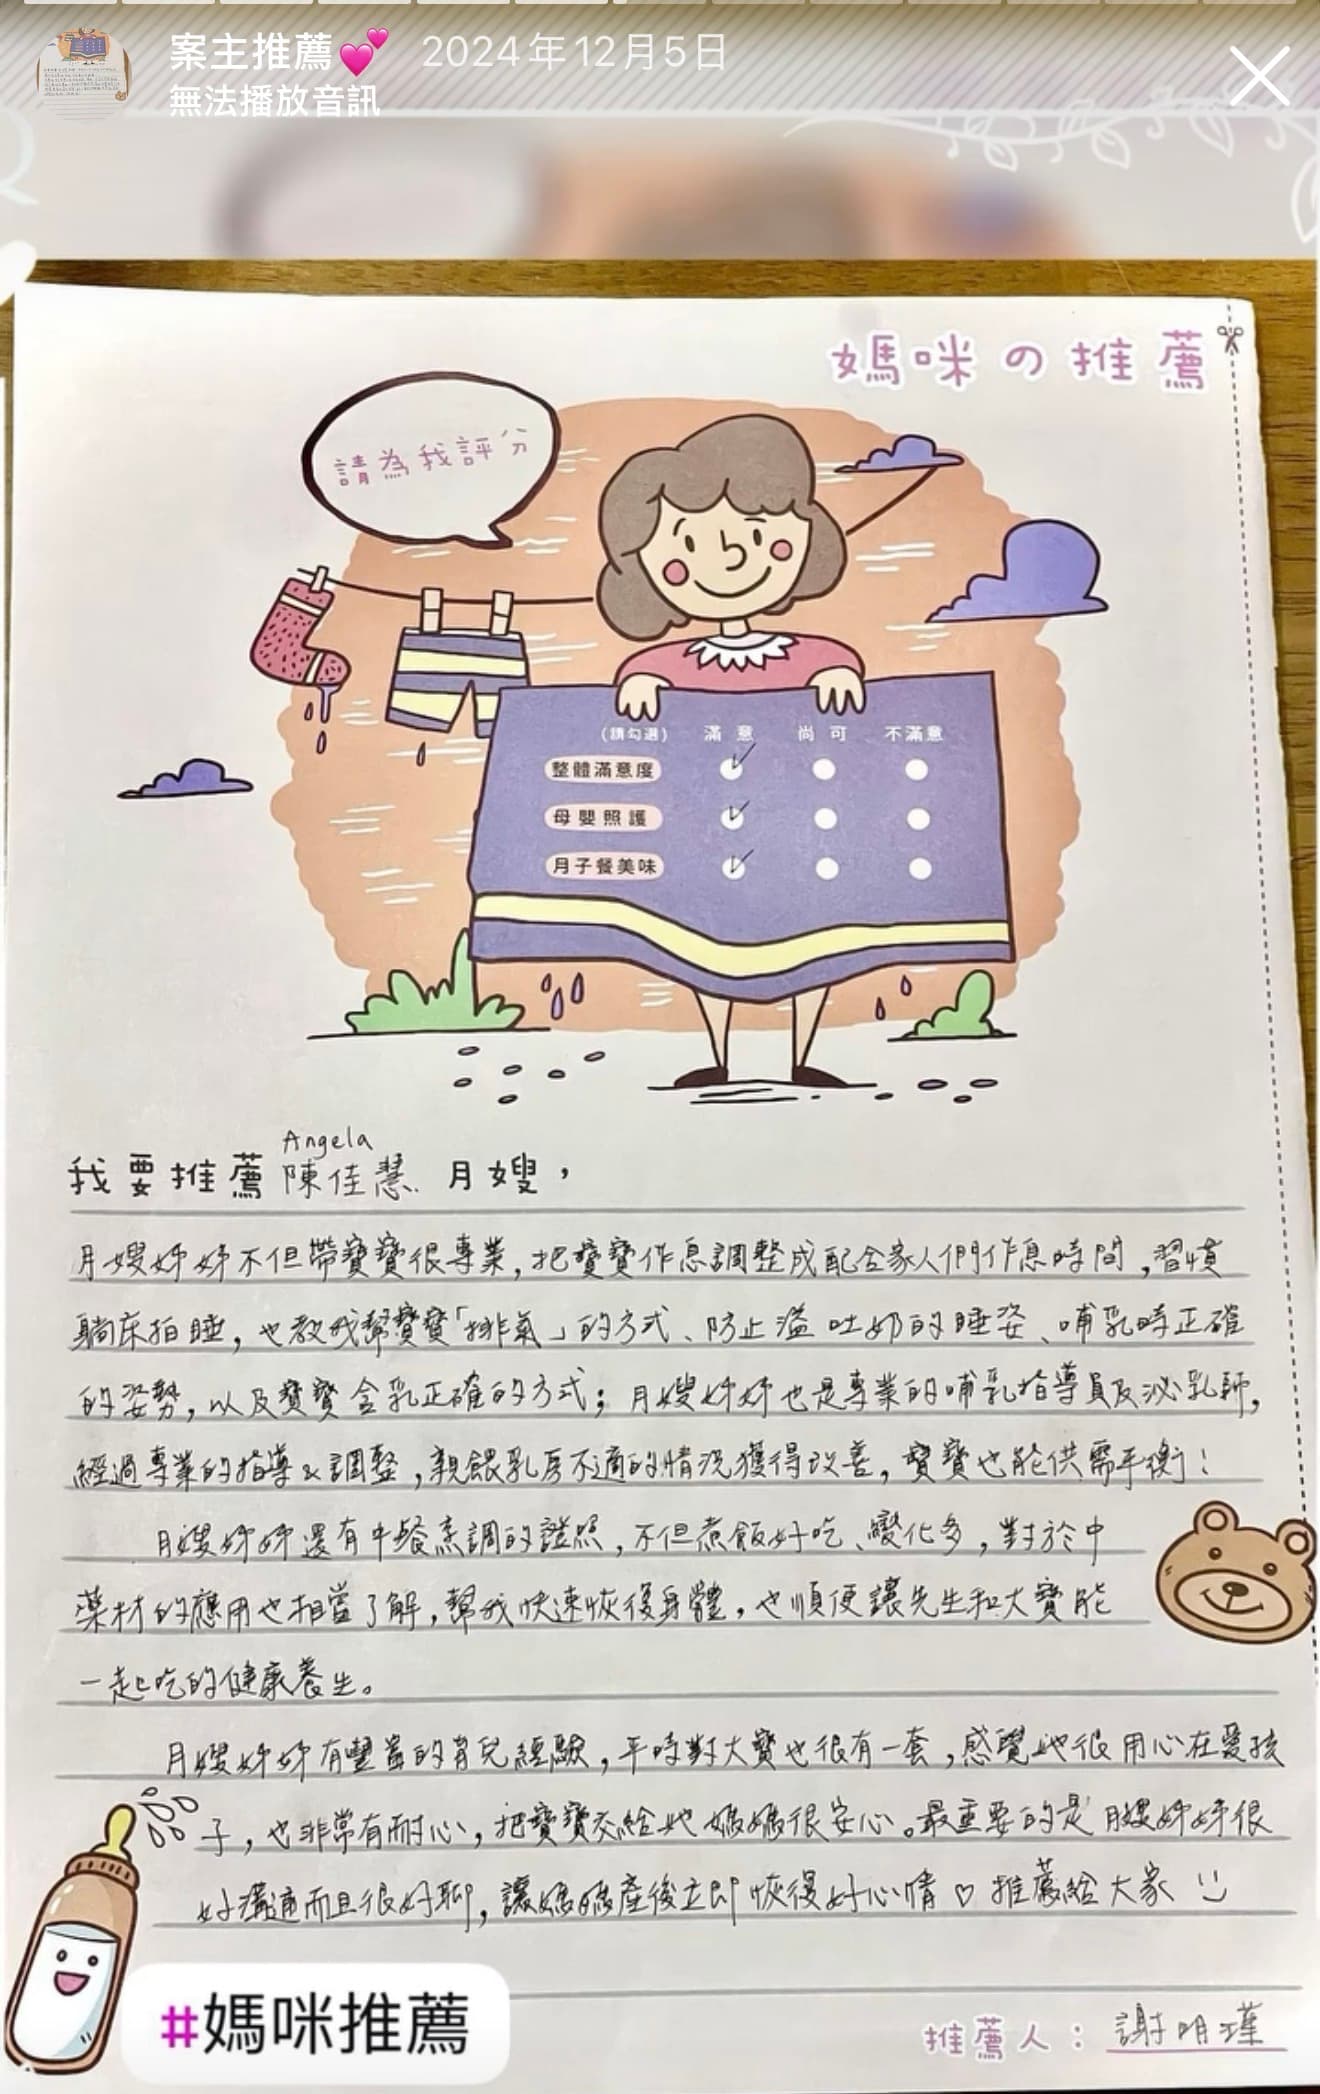 案主推薦💕 2024年12月5日
無法播放音訊
媽咪の推薦
請為我評分
(請勾選) 滿意 尚可 不滿意
整體滿意度
母嬰照護
月子餐美味
Angela
我要推薦 陳佳慧 月嫂,
月嫂姊姊不但帶寶寶很專業,把寶寶作息調整成配合家人們作息時間,習慣
躺床拍睡,也教我幫寶寶「排氣」的方式、防止溢吐奶的睡姿、哺乳時正確
的姿勢,以及寶寶含乳正確的方式;月嫂姊姊也是專業的哺乳指導員及泌乳師,
經過專業的指導&調整,親餵乳房不適的情況獲得改善,寶寶也能供需平衡!
月嫂姊姊還有中餐烹調的證照,不但煮飯好吃、變化多,對於中
藥材的應用也相當了解,幫我快速恢復身體,也順便讓先生和大寶能
一起吃的健康養生。
月嫂姊姊有豐富的育兒經驗,平時對大寶也很有一套,感覺她很用心在愛孩
子,也非常有耐心,把寶寶交給她媽媽很安心。最重要的是月嫂姊姊很
好溝通而且很好聊,讓媽媽產後立即恢復好心情♡推薦給大家
#媽咪推薦
推薦人:謝明瑾